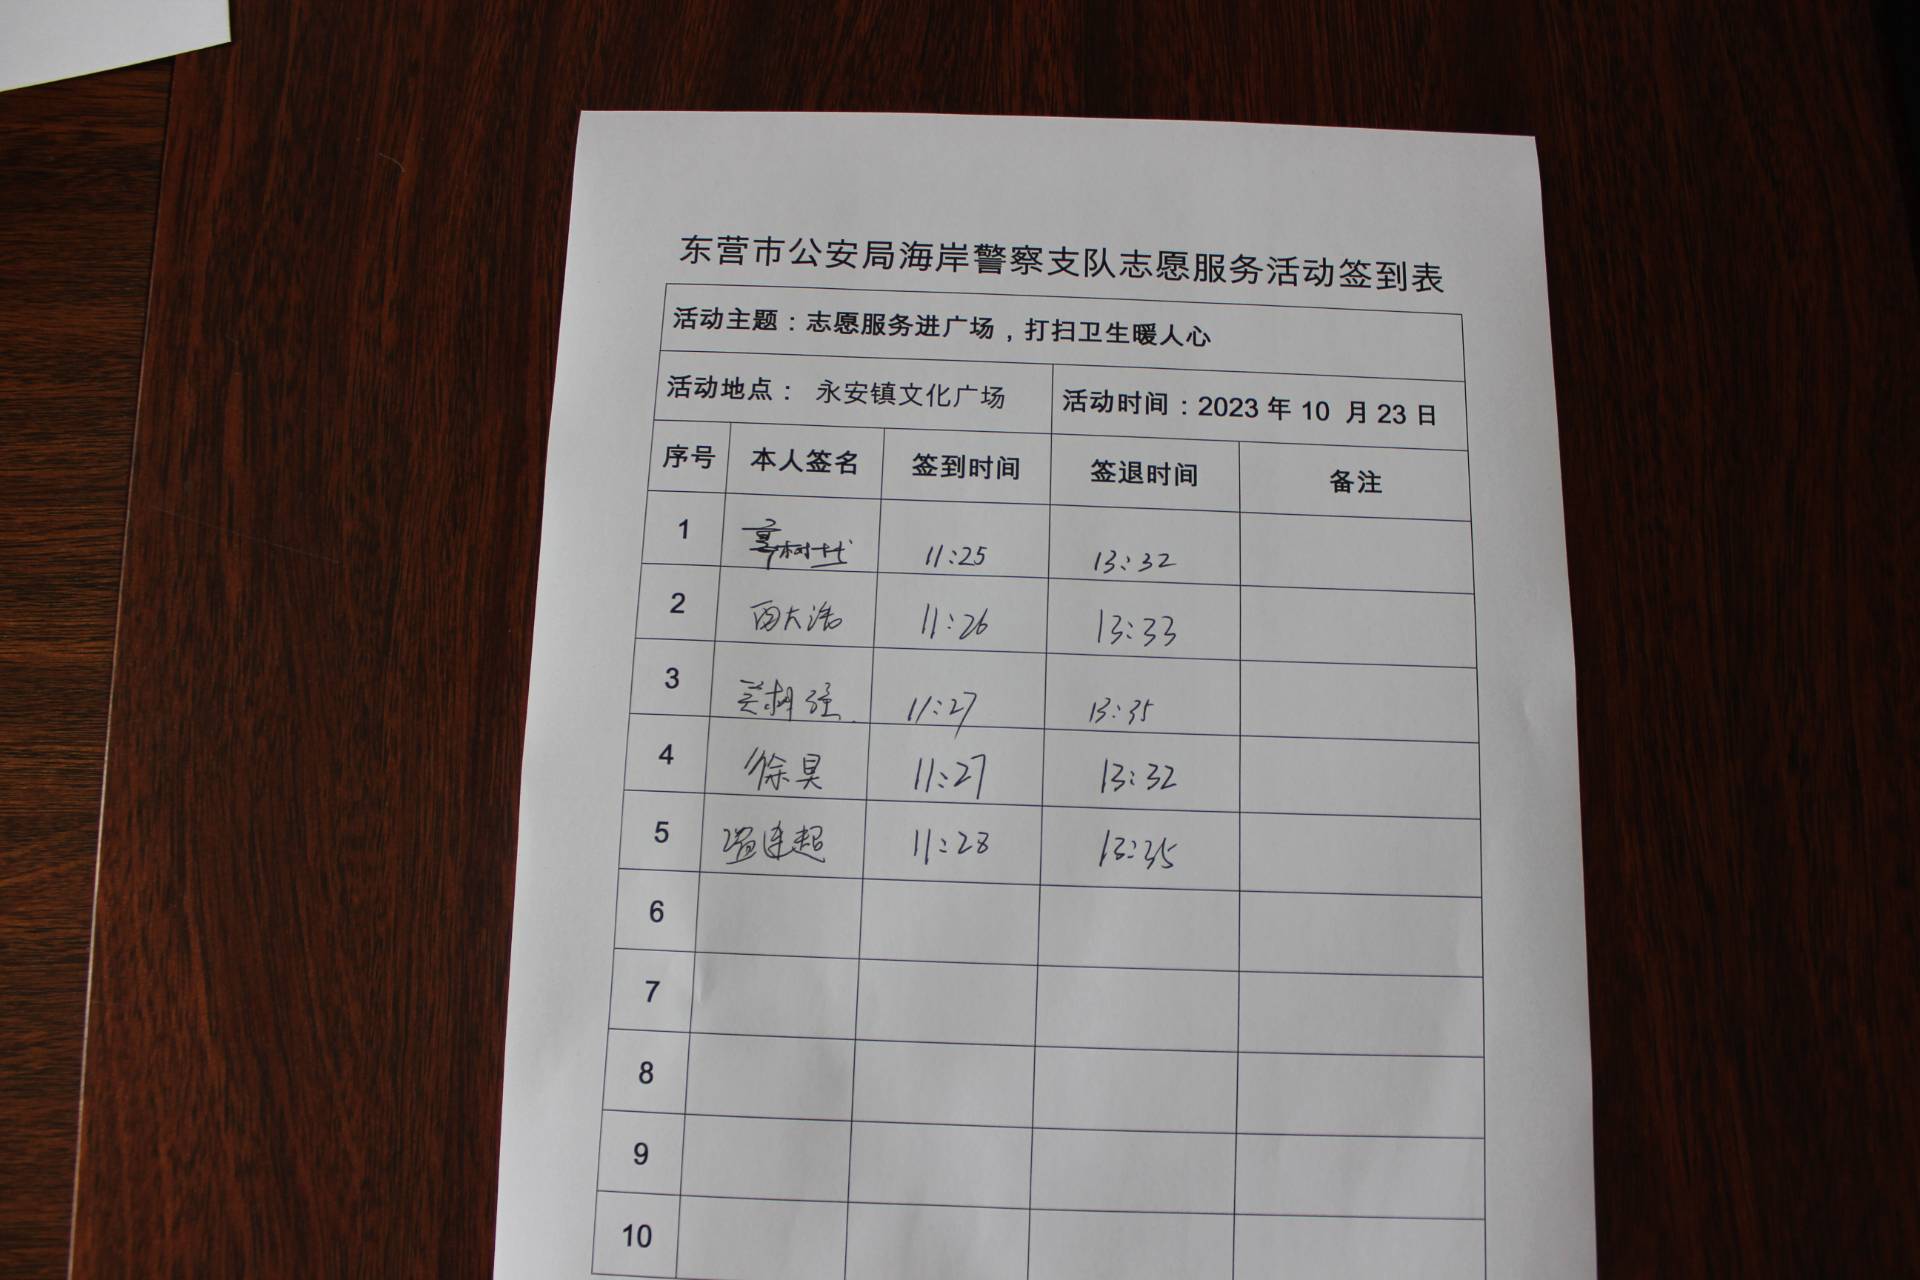 东营市公安局海岸警察支队志愿服务活动签到表
活动主题：志愿服务进广场，打扫卫生暖人心
活动地点： 永安镇文化广场 活动时间：2023 年 10 月 23 日
序号 本人签名 签到时间 签退时间 备注
1 11:25 13:32
2 大浩 11:26 13:33
3 11:27 13:35
4 徐昊 11:27 13:32
5 温连超 11:28 13:35
6
7
8
9
10